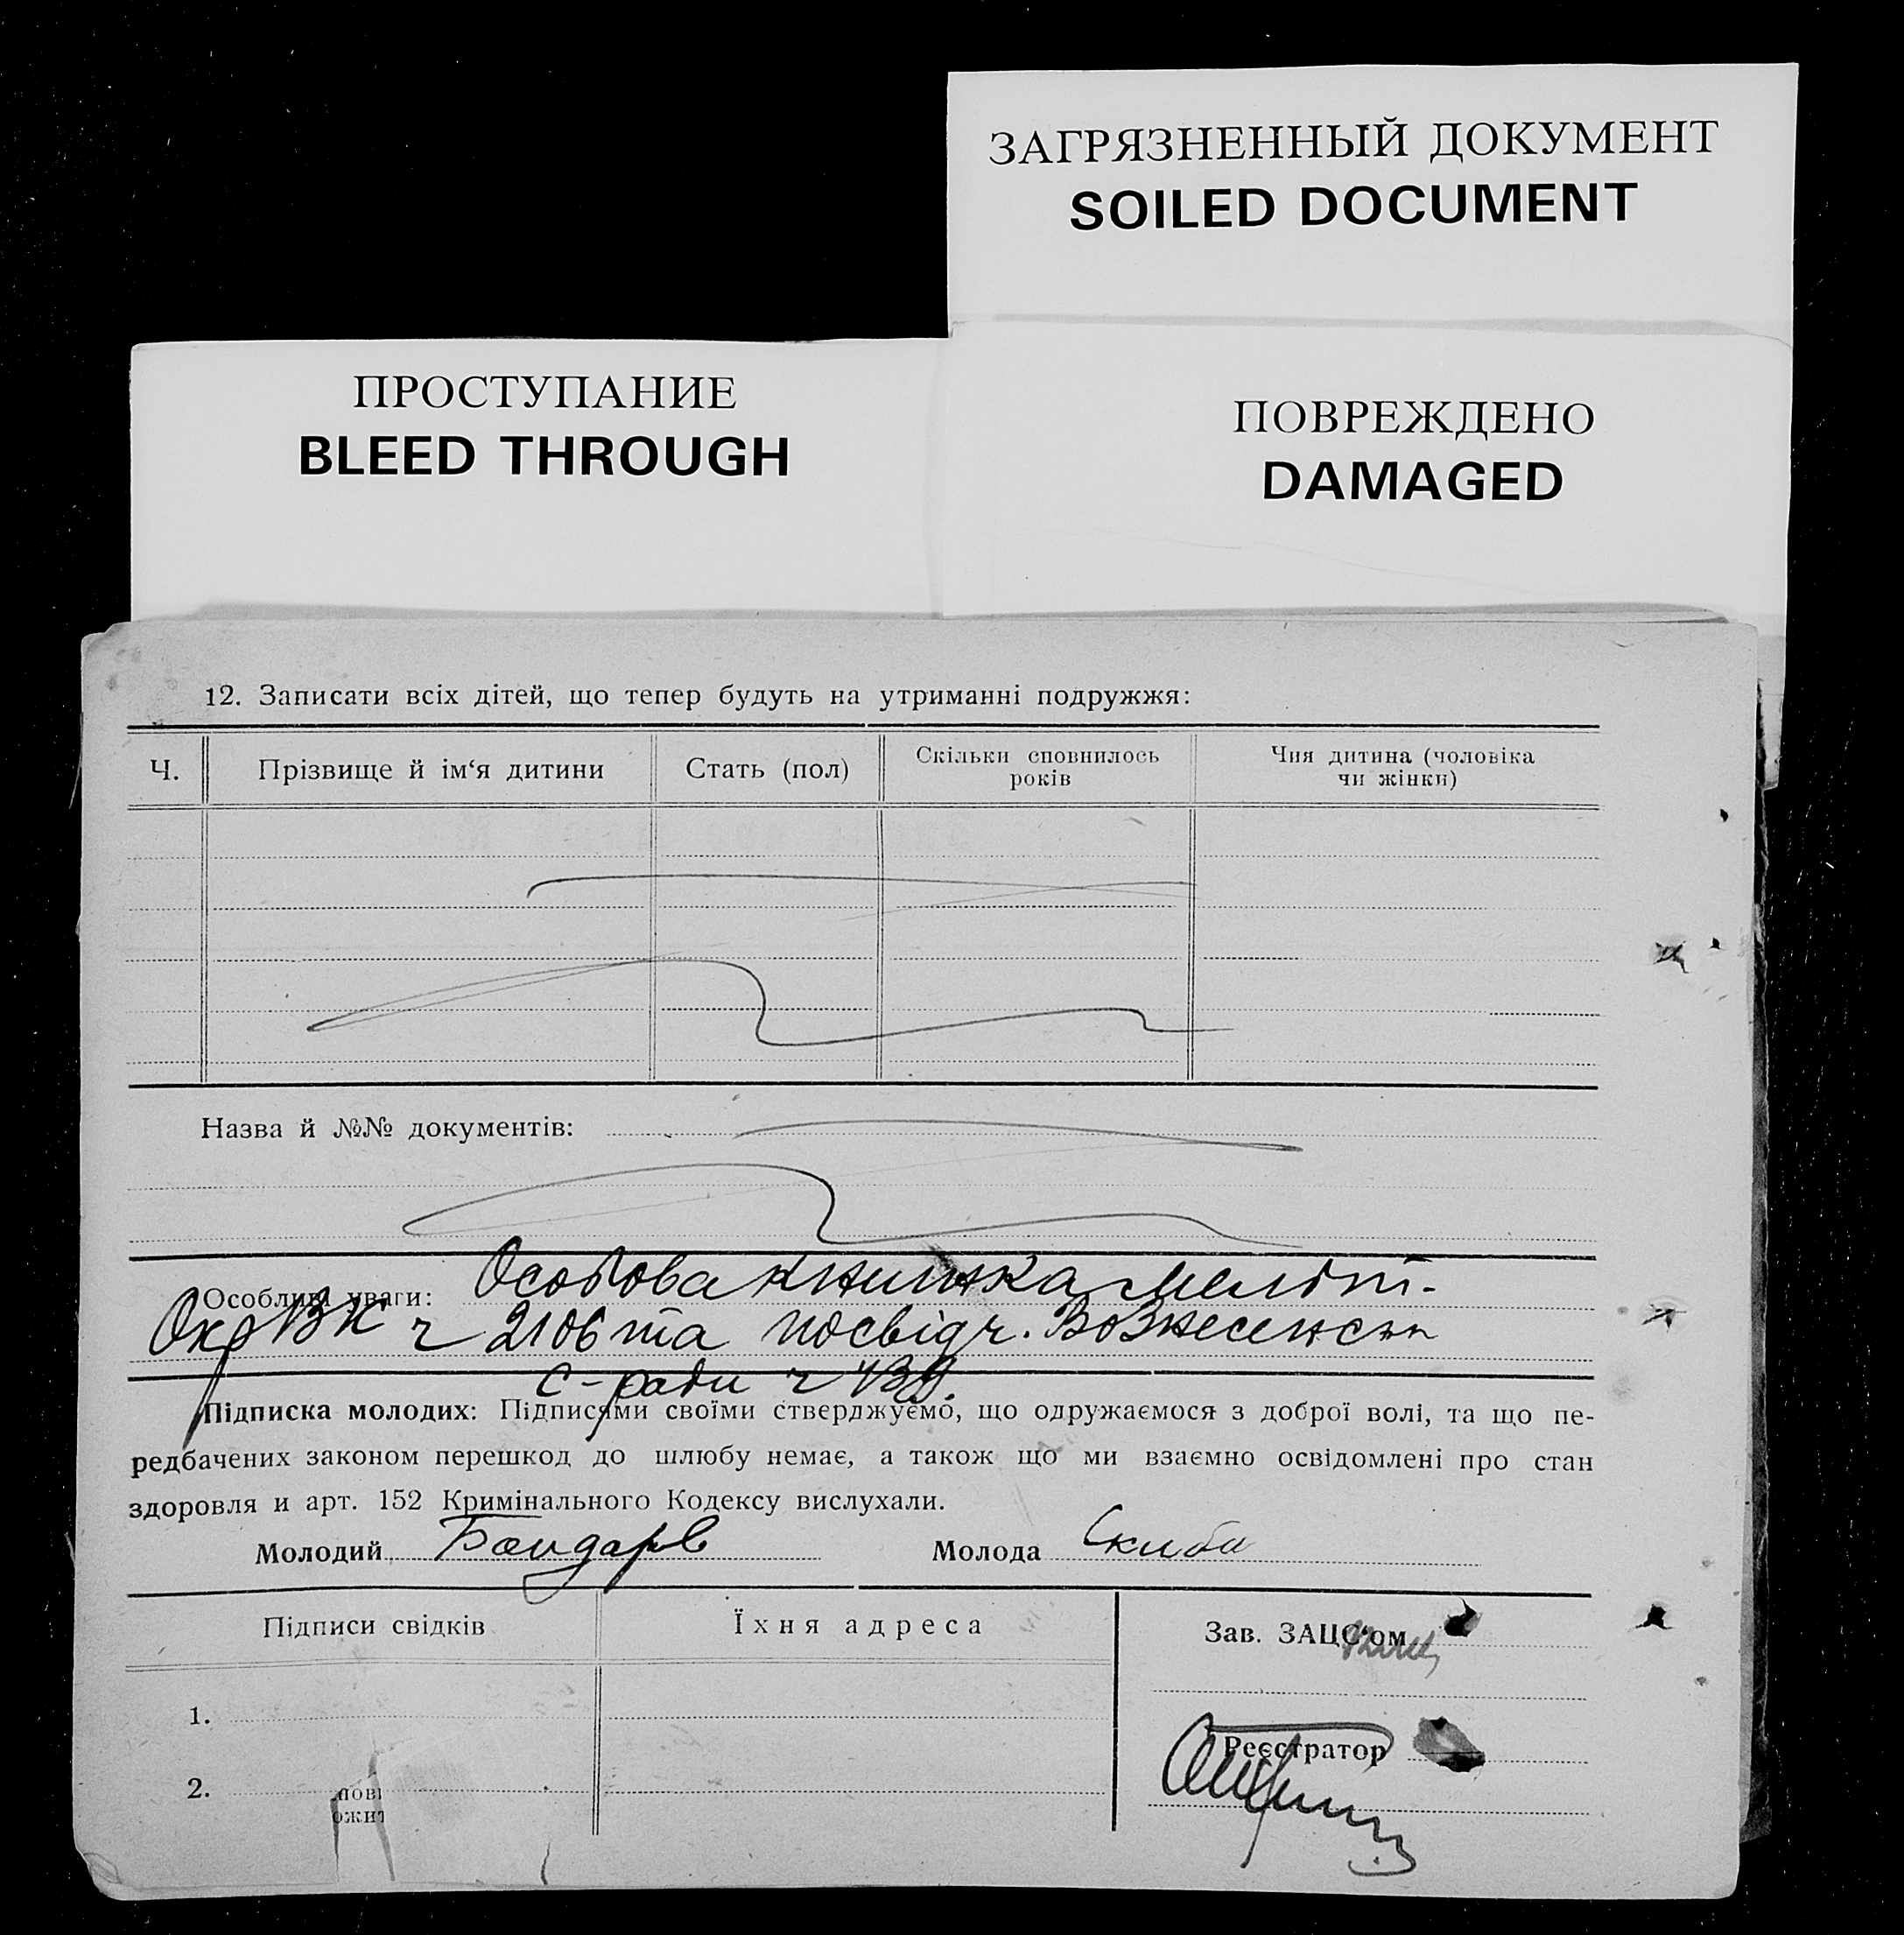 ЗАГРЯЗНЕННЫЙ ДОКУМЕНТ
SOILED DOCUMENT
ПРОСТУПАНИЕ
BLEED THROUGH
ПОВРЕЖДЕНО
DAMAGED
12. Записати всіх дітей, що тепер будуть на утриманні подружжя:
Ч.
Прізвище й ім‘я дитини
Стать (пол)
Скільки сповнилось
років
Чия дитина (чоловіка
чи жінки)
Назва й №№ документів:
Особливі уваги: Особова книжка Меліт.
ОкрВК ч 2106 та посвідч. Вознесенськ
с-ради ч 439.
Підписка молодих: Підписями своїми стверджуємо, що одружаємося з доброї волі, та що пе-
редбачених законом перешкод до шлюбу немає, а також що ми взаємно освідомлені про стан
здоровля и арт. 152 Кримінального Кодексу вислухали.
Молодий Бондарв
Молода Скиба
Підписи свідків
Їхня адреса
Зав. ЗАЦС‘ом
1.
Реєстратор
2.
пові
ожит